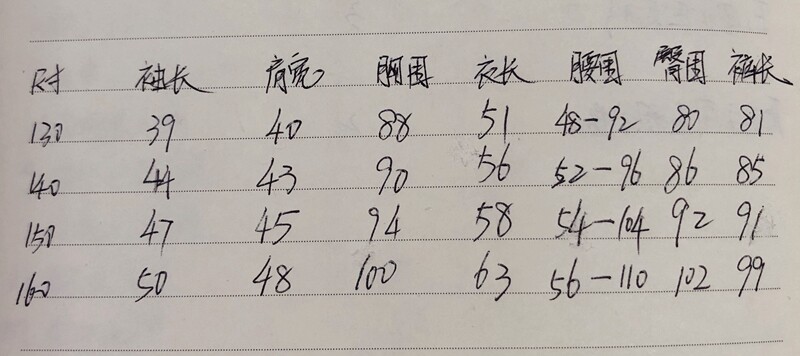 尺寸 袖长 肩宽 胸围 衣长 腰围 臀围 裤长
130 39 40 88 51 48-92 80 81
140 44 43 90 56 52-96 86 85
150 47 45 94 58 54-104 92 91
160 50 48 100 63 56-110 102 99